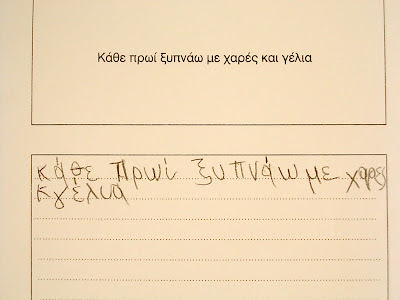 Κάθε πρωί ξυπνάω με χαρές και γέλια
κάθε πρωί ξυπνάω με χαρες
κγέλια